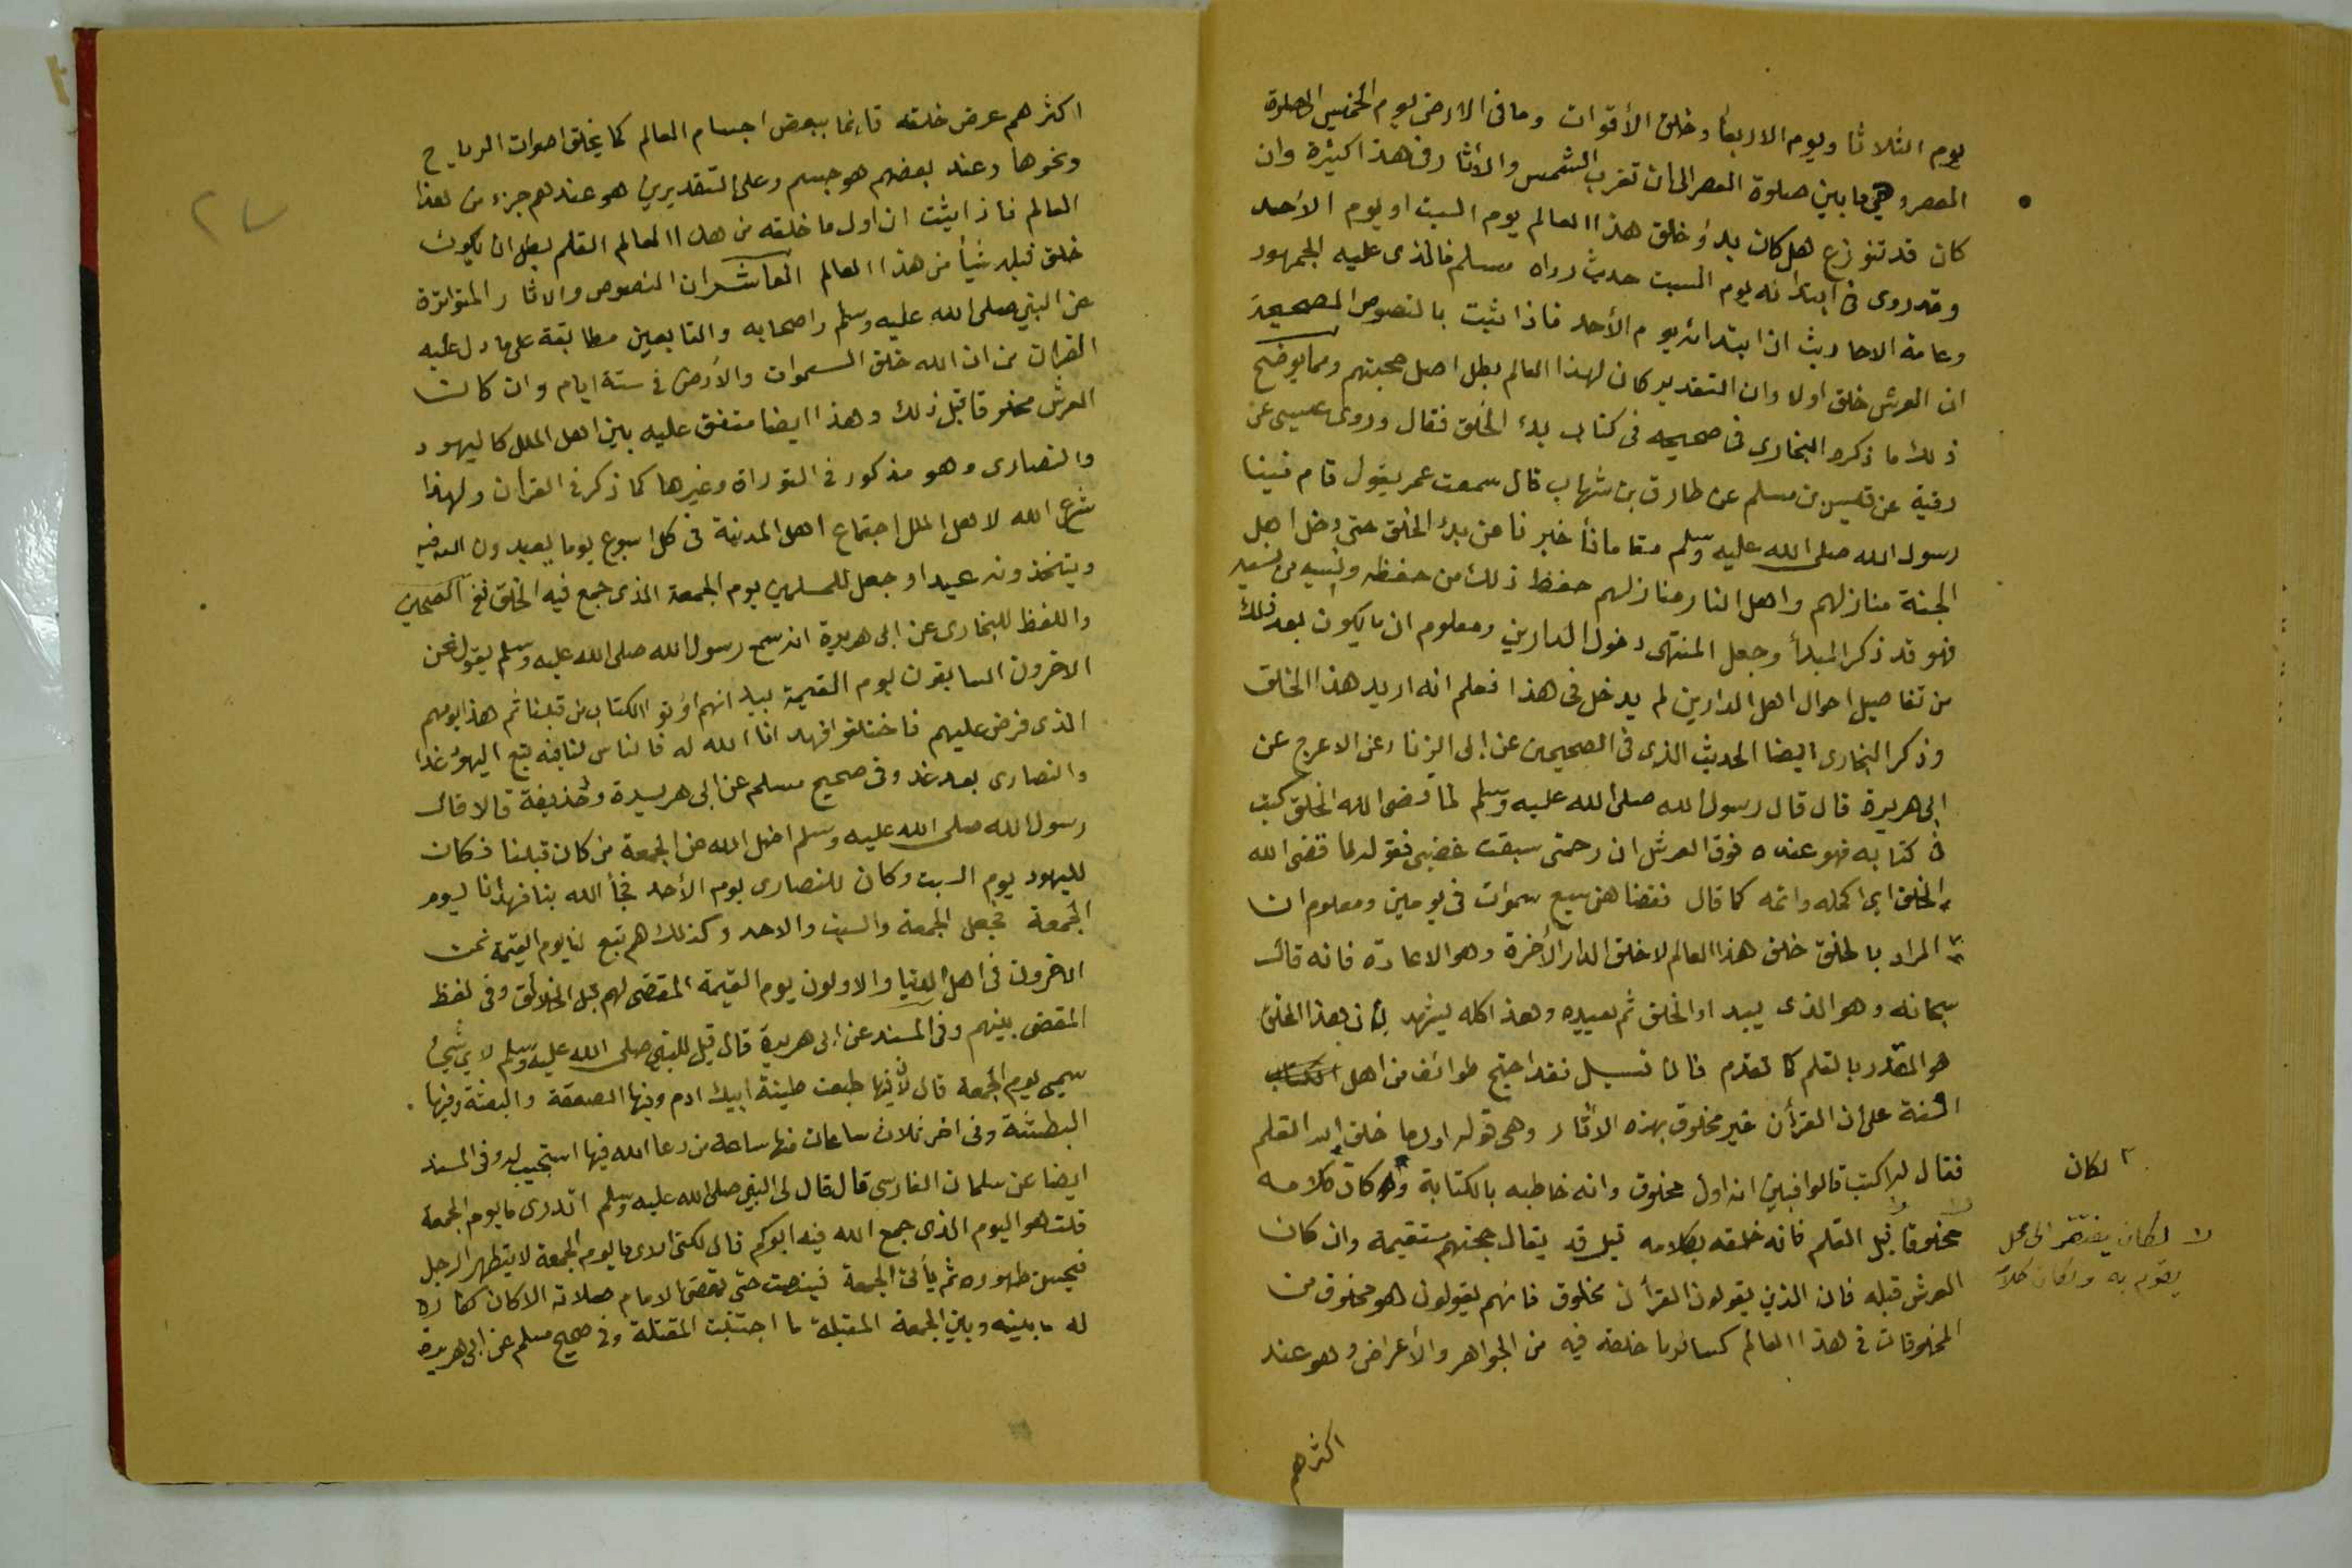 يوم الثلاثا ويوم الاربعا وخلق الأقوات وما فى الارض يوم الخميس الى صلوة
العصر وهي ما بين صلوة العصر الى ان تغرب الشمس والأثار فى هذا كثيرة وان
كان قد تنوزع هل كان بدؤ خلق هذا العالم يوم السبت او يوم الأحد
وقد روى فى ابتدائه يوم السبت حديث رواه مسلم فالذى عليه الجمهور
وعامة الاحاديث ان ابتدائه يوم الأحد فاذا ثبت بالنصوص الصحيحة
ان العرش خلق اولا وان التقدير كان لهذا العالم بطل اصل حجتهم ومما يوضح
ذلك ما ذكره البخارى فى صحيحه فى كتاب بدء الخلق فقال وروى عيسى عن
رقية عن قيس بن مسلم عن طارق بن شهاب قال سمعت عمر يقول قام فينا
رسول الله صلى الله عليه وسلم مقاما فأخبرنا عن بدء الخلق حتى دخل اهل
الجنة منازلهم واهل النار منازلهم حفظ ذلك من حفظه ونسيه من نسيه
فهو قد ذكر المبدأ وجعل المنتهى دخول الدارين ومعلوم ان ما يكون بعد ذلك
من تفاصيل احوال اهل الدارين لم يدخل فى هذا فعلم انه اريد هذا الخلق
وذكر البخارى ايضا الحديث الذى فى الصحيحين عن ابى الزناد عن الاعرج عن
ابى هريرة قال قال رسول الله صلى الله عليه وسلم لما قضى الله الخلق كتب
فى كتابه فهو عنده فوق العرش ان رحمتى سبقت غضبى فقوله لما قضى الله
الخلق اى اكمله واتمه كما قال فقضاهن سبع سموات فى يومين ومعلوم ان
المراد بالخلق خلق هذا العالم لا خلق الدار الأخرة وهو الاعادة فانه قال
سبحانه وهو الذى يبداو الخلق ثم يعيده وهذا كله يشهد بأن هذا الخلق
هو المقدر بالقلم كما تقدم فان قيل فقد احتج طوائف من اهل
السنة على ان القرأن غير مخلوق بهذه الاثار وهى قوله اول ما خلق الله القلم
فقال له اكتب قالوا فبين انه اول مخلوق وانه خاطبه بالكتابة ولو كان كلامه
مخلوقا قبل القلم فانه خلقه بكلامه قيل قد يقال حجتهم مستقيمة وان كان
العرش قبله فان الذين يقولون القرأن مخلوق فانهم يقولون هو مخلوق من
المخلوقات فى هذا العالم كسائر ما خلقه فيه من الجواهر والأعراض وهو عند
لكان
لكان يفتقر الى محل
يقوم به ولكان كلام
اكثرهم
اكثرهم عرض خلقه قائما ببعض اجسام العالم كما يخلق اصوات الرياح
ونحوها وعند بعضهم هو جسم وعلى التقديرين هو عندهم جزء من هذا
العالم فاذا يثبت ان اول ما خلقه من هذا العالم القلم بطل ان يكون
خلق قبله شيأ من هذا العالم العاشر ان النصوص والاثار المتواترة
عن النبي صلى الله عليه وسلم واصحابه والتابعين مطابقة على ما دل عليه
القران من ان الله خلق السموات والأرض فى ستة ايام وان كان
العرش مخلوقا قبل ذلك وهذا ايضا متفق عليه بين اهل الملل كاليهود
والنصارى وهو مذكور فى التوراة وغيرها كما ذكر فى القرأن ولهذا
شرع الله لاهل الملل اجتماع اهل المدينة فى كل اسبوع يوما يعبدون الله فيه
ويتخذونه عيدا وجعل للمسلمين يوم الجمعة الذى جمع فيه الخلق ففى الصحيحين
واللفظ للبخارى عن ابى هريرة انه سمع رسول الله صلى الله عليه وسلم يقول نحن
الاخرون السابقون يوم القيمة بيد انهم اوتو الكتاب من قبلنا ثم هذا يومهم
الذى فرض عليهم فاختلفوا فهدانا الله له فالناس لنا فيه تبع اليهود غدا
والنصارى بعد غد وفى صحيح مسلم عن ابى هريرة وحذيفة قالا قال
رسول الله صلى الله عليه وسلم اضل الله عن الجمعة من كان قبلنا فكان
لليهود يوم السبت وكان للنصارى يوم الأحد فجأ الله بنا فهدأنا ليوم
الجمعة فجعل الجمعة والسبت والاحد وكذلك هم تبع لنا يوم القيمة نحن
الاخرون فى اهل الدنيا والاولون يوم القيمة المقضى لهم قبل الخلائق وفى لفظ
المقضى بينهم وفى المسند عن ابى هريرة قال قيل للنبي صلى الله عليه وسلم لاي شيئ
سمي يوم الجمعة قال لأن فيها طبعت طينة ابيك ادم وفيها الصعقة والبعثة وفيها
البطشة وفى اخر ثلاث ساعات منها ساعة من دعا الله فيها استجيب له وفى المسند
ايضا عن سلمان الفارسي قال قال لى النبي صلى الله عليه وسلم اتدرى ما يوم الجمعة
قلت هو اليوم الذى جمع الله فيه ابوكم قال لكنى ادرى ما يوم الجمعة لا يتطهر الرجل
فيحسن طهوره ثم يأتى الجمعة فينصت حتى يقضى الامام صلاته الا كان كفارة
له ما بينه وبين الجمعة المقبلة ما اجتنبت المقتلة وفى صحيح مسلم عن ابى هريرة